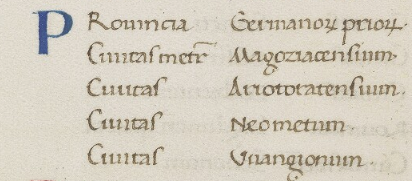 PRouincia Germanoꝝ prioꝝ.
Ciuitas metr̄ Magoziacensium.
Ciuitas Ariotoratensium.
Ciuitas Neometum
Ciuitas Vuangionum